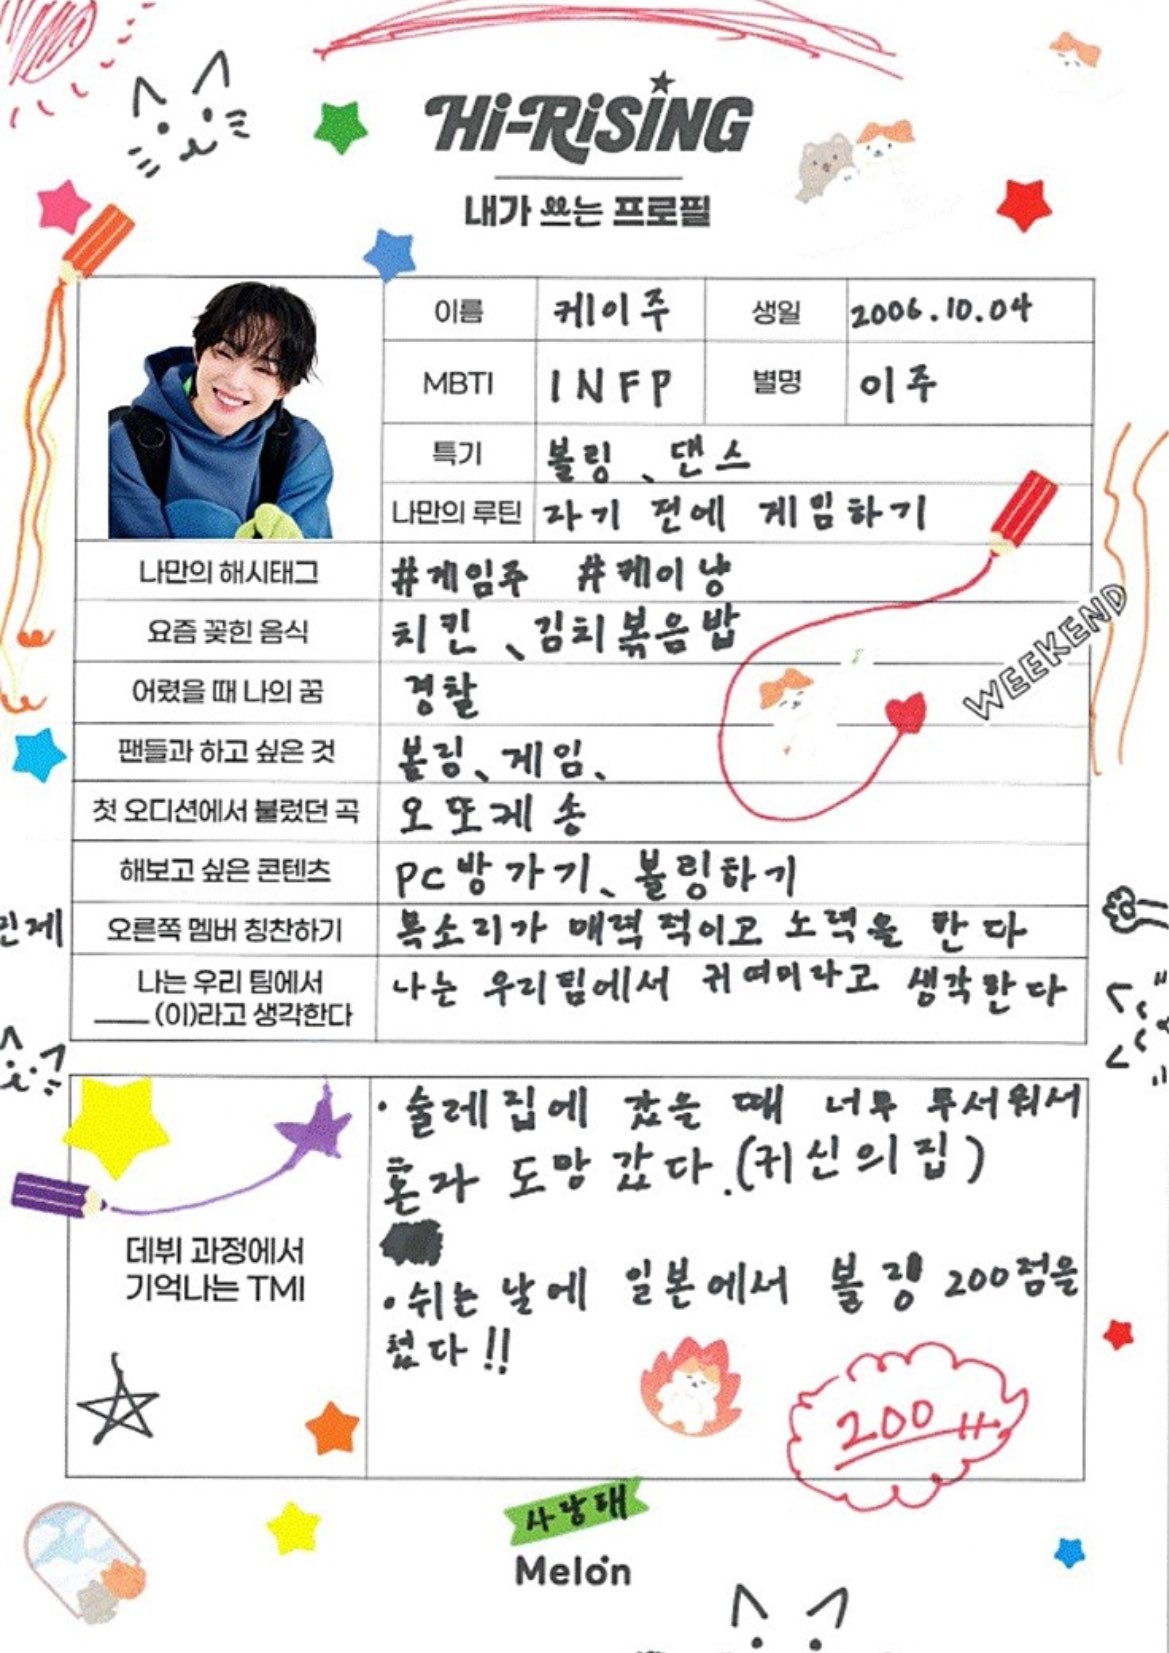 Hi-RiSiNG
내가 쓰는 프로필
이름 케이주 생일 2006.10.04
MBTI INFP 별명 이주
특기 볼링、댄스
나만의 루틴 자기 전에 게임하기
나만의 해시태그 #게임주 #케이냥
요즘 꽂힌 음식 치킨、김치볶음밥
어렸을 때 나의 꿈 경찰
WEEKEND
팬들과 하고 싶은 것 볼링、게임、
첫 오디션에서 불렀던 곡 오또케송
해보고 싶은 콘텐츠 PC방가기、볼링하기
민제
오른쪽 멤버 칭찬하기 목소리가 매력적이고 노력을 한다
나는 우리 팀에서
____ (이)라고 생각한다
나는 우리팀에서 귀여미라고 생각한다
데뷔 과정에서
기억나는 TMI
·술레집에 갔을 때 너무 무서워서
혼자 도망갔다.(귀신의집)
·쉬는 날에 일본에서 볼링 200점을
쳤다!!
200!!
사랑해
Melon